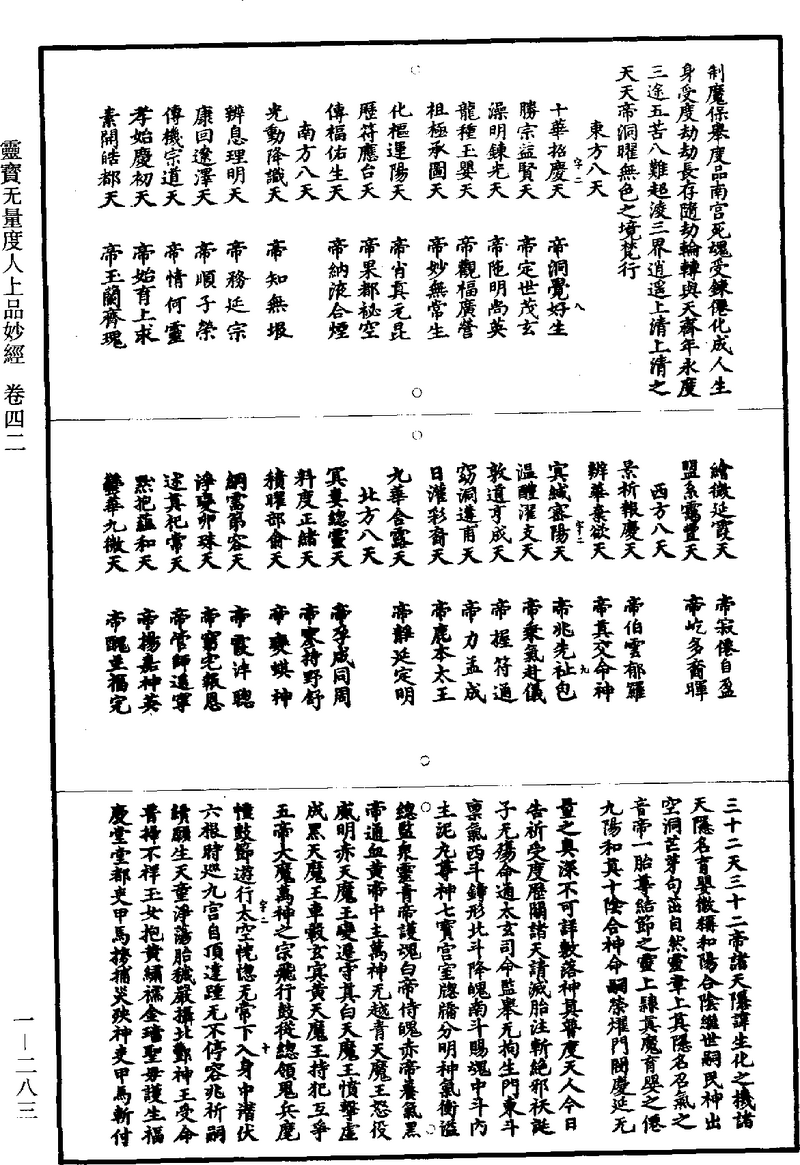 靈寶无量度人上品妙經　卷四二
一—二八三
制魔保舉度品南宮死魂受鍊僊化成人生
身受度劫劫長存隨劫輪轉與天齊年永度
三途五苦八難超凌三界逍遥上清上清之
天天帝洞曜無色之境梵行
東方八天
十華招慶天　帝洞覺好生
字二　八
勝宗益賢天　帝定世茂玄
澡明鍊光天　帝陁明尚英
龍種玉嬰天　帝觀福廣營
祖極承圖天　帝妙無常生
化樞運陽天　帝肖真元昆
歷符應台天　帝果都祕空
傳福佑生天　帝納液合煙
南方八天
光動降讖天　帝知無垠
辨息理明天　帝務延宗
康回遼澤天　帝順子榮
傳機宗道天　帝情何靈
孝始慶初天　帝始育上求
素開皓都天　帝玉蘭齊瑰
繪微延霞天　帝寂僊自盈
盟系靄豐天　帝屹多裔暉
西方八天
景祈報慶天　帝伯雲郁羅
辨華棄欲天　帝真交命神
賓緘密陽天　帝兆先祉包
字二　九
温醴濯支天　帝乘氣赴儀
敦道亨成天　帝握符通
窈洞遺育天　帝力孟成
日濯彩裔天　帝鹿本太王
九華合露天　帝離延定明
北方八天
冥婁總靈天　帝孕成同周
料度正緒天　帝寒持野舒
積曜部侖天　帝變蜞神
綱雲第容天　帝霞沣聰
淨瓊卯珠天　帝窮宅報恩
述真祀常天　帝管師通寧
熙抱蘊和天　帝揚嘉神英
鬱華九微天　帝醜並福完
三十二天三十二帝諸天隱諱生化之機諸
天隱名育嬰微稱和陽合陰繼世嗣民神出
空洞芒芽句茁自然靈章上真隱名名氣之
音帝一胎尊結節之靈上隸真魔育嬰之僊
九陽和真十陰合神命嗣榮燿門閥慶延无
量之奧深不可詳敷落神真普度天人今日
告祈受度歷關諸天請滅胎注斬絶邪祅誕
子无殤命通太玄司命監舉无拘生門東斗
稟氣西斗鑄形北斗降魄南斗賜魂中斗內
主泥丸尊神七寳宮室牕牖分明神氣衝溢
總監衆靈青帝護魂白帝侍魄赤帝養氣黑
帝通血黄帝中主萬神无越青天魔王怒役
威明赤天魔王變遷守真白天魔王憤擊虚
成黑天魔王車轂玄賓黄天魔王持犯互爭
五帝大魔萬神之宗飛行鼓從總領鬼兵麾
幢鼓節遊行太空恍惚无常下入身中潛伏
字二　十
六根時巡九宮自頂達踵无不停容兆祈嗣
續願生天童淨蕩胎穢嚴攝北酆神王受命
普掃不祥玉女抱黄繡襦金璫聖母護生福
慶堂堂都吏甲馬搒捕災殃神吏甲馬斬付